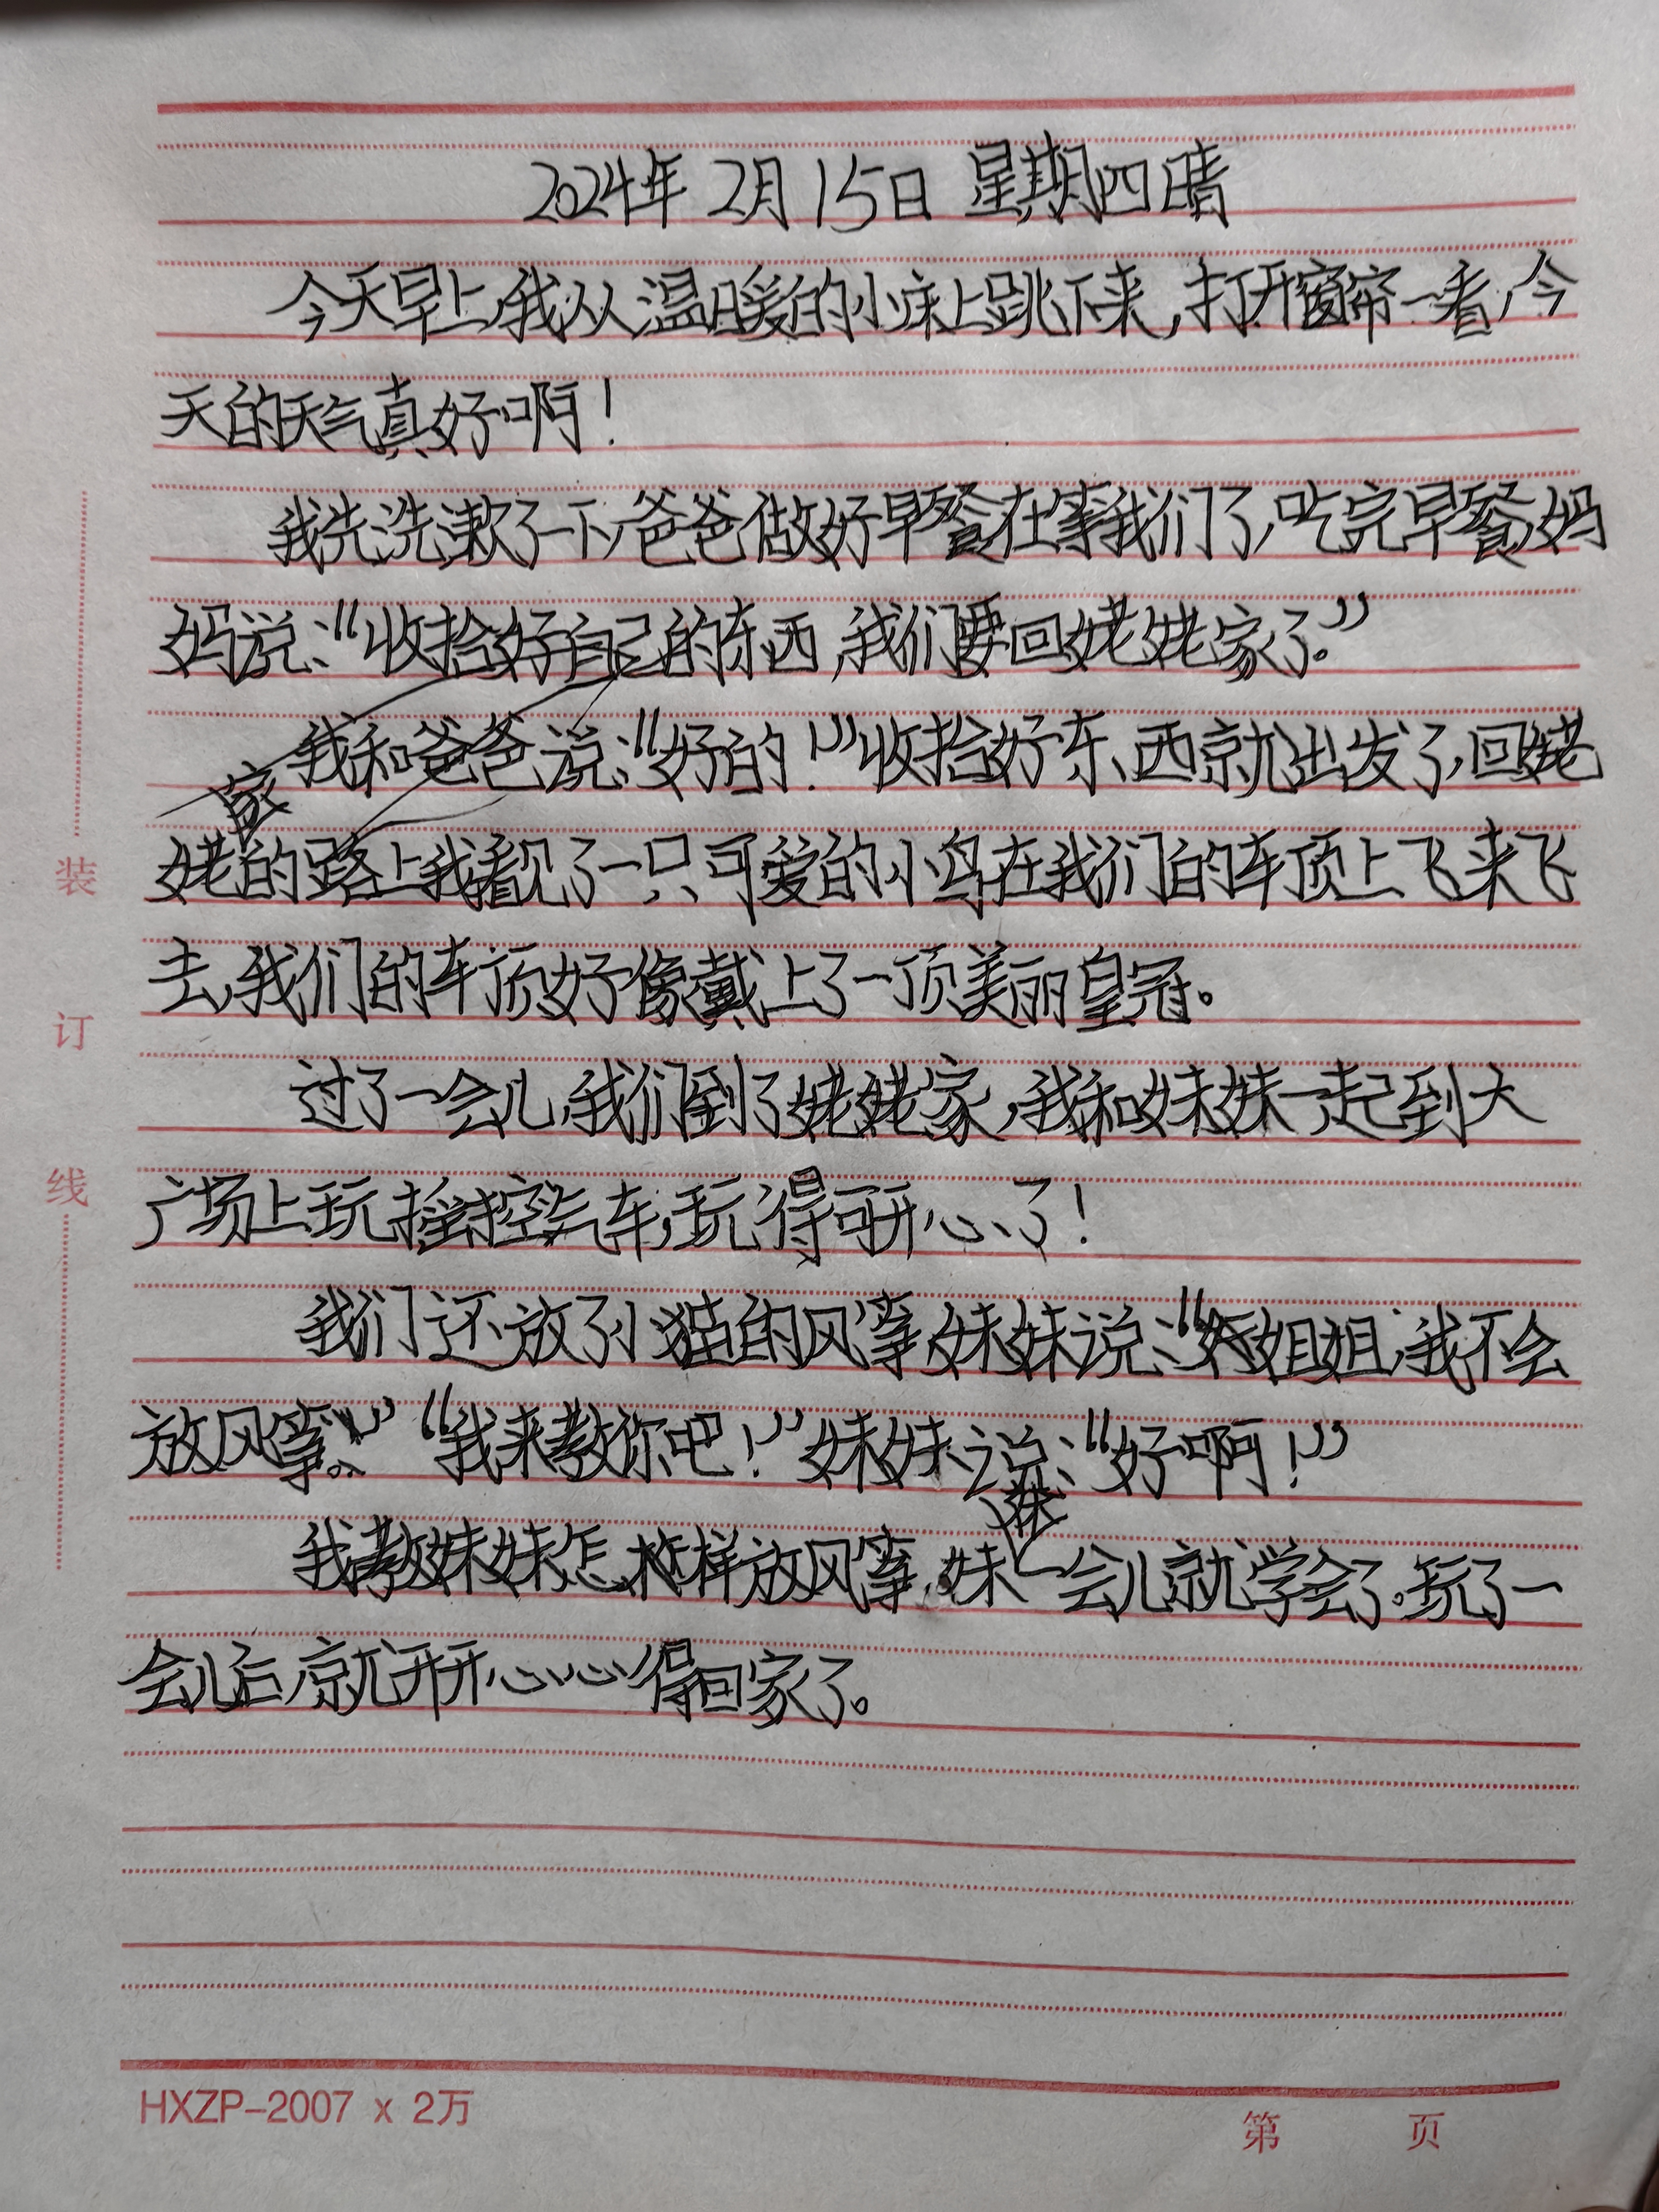 2024年2月15日 星期四 晴
今天早上,我从温暖的小床上跳下来,打开窗帘一看,今
天的天气真好啊!
我先洗漱了一下,爸爸做好早餐在等我们了,吃完早餐,妈
妈说:“收拾好自己的东西,我们要回姥姥家了。”
我和爸爸说:“好的!”收拾好东西就出发了,回姥
姥家的路上我看见了一只可爱的小鸟在我们的车顶上飞来飞
去,我们的车顶好像戴上了一顶美丽皇冠。
过了一会儿,我们到了姥姥家,我和妹妹一起到大
广场上玩摇控汽车,玩得可开心了!
我们还放了小猫的风筝,妹妹说:“姐姐,我不会
放风筝。”“我来教你吧!”妹妹说:“好啊!”
我教妹妹怎么样放风筝,妹妹一会儿就学会了。玩了一
会儿后,就开开心心得回家了。
装
订
线
HXZP-2007 x 2万
第 页